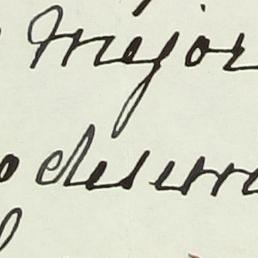 mejor
o deserra